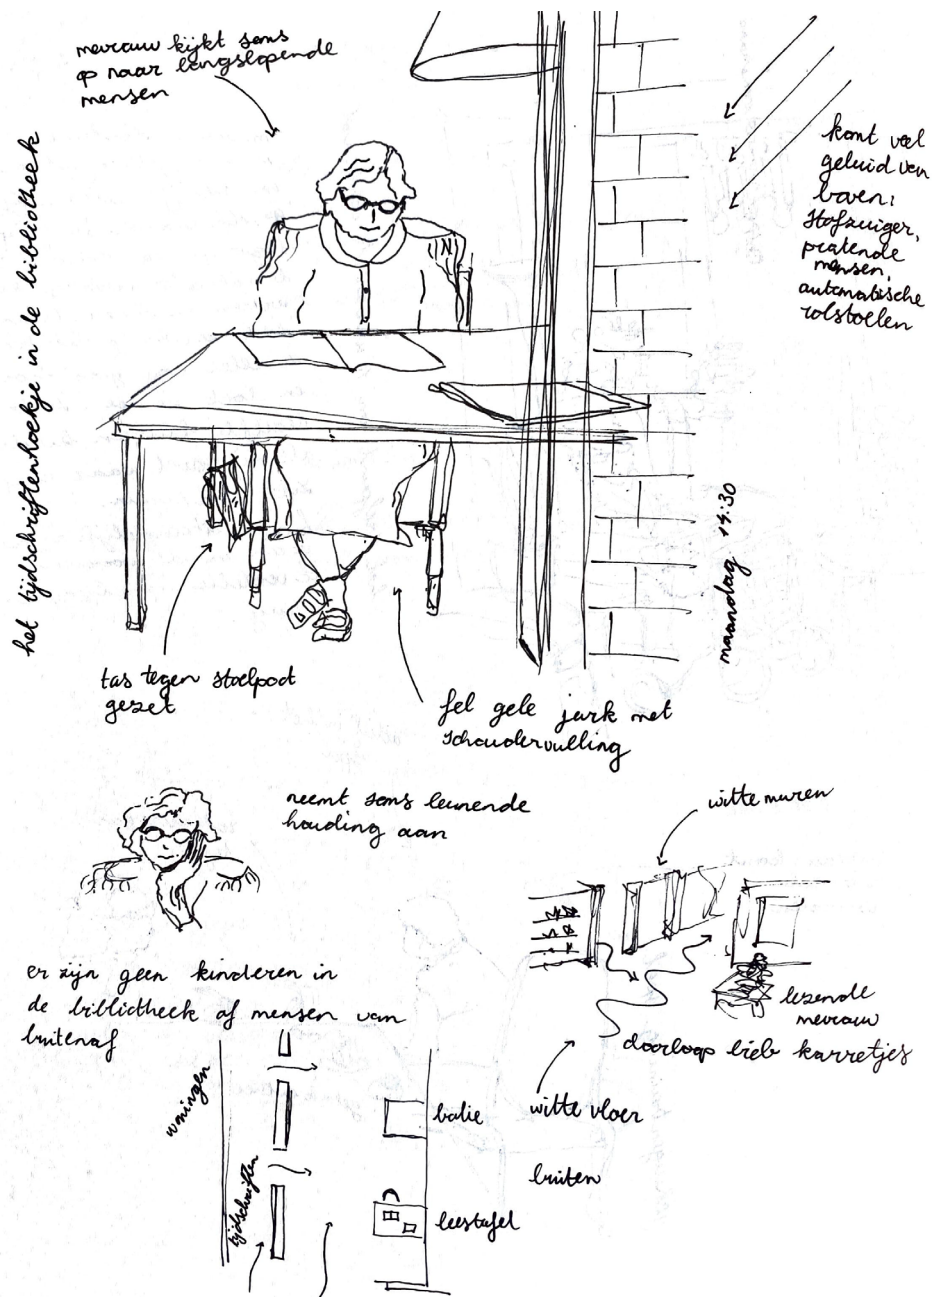 het tijdschriftenhoekje in de bibliotheek
mevrouw kijkt soms
op naar langslopende
mensen
komt veel
geluid van
boven:
stofzuiger,
pratende
mensen,
automatische
rolstoelen
maandag 14:30
tas tegen stoelpoot
gezet
fel gele jurk met
schoudervulling
neemt soms leunende
houding aan
witte muren
lezende
mevrouw
doorloop bieb karretjes
witte vloer
er zijn geen kinderen in
de bibliotheek of mensen van
buitenaf
woningen
tijdschriften
balie
buiten
leestafel